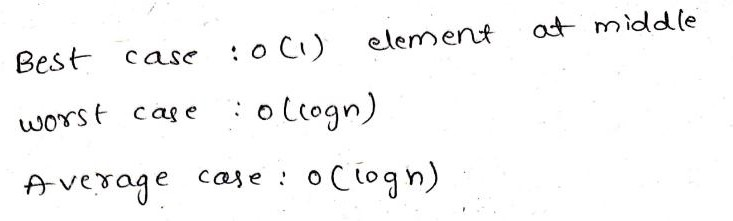 Best case : o(1) element at middle
worst case : o(logn)
Average case : o(logn)